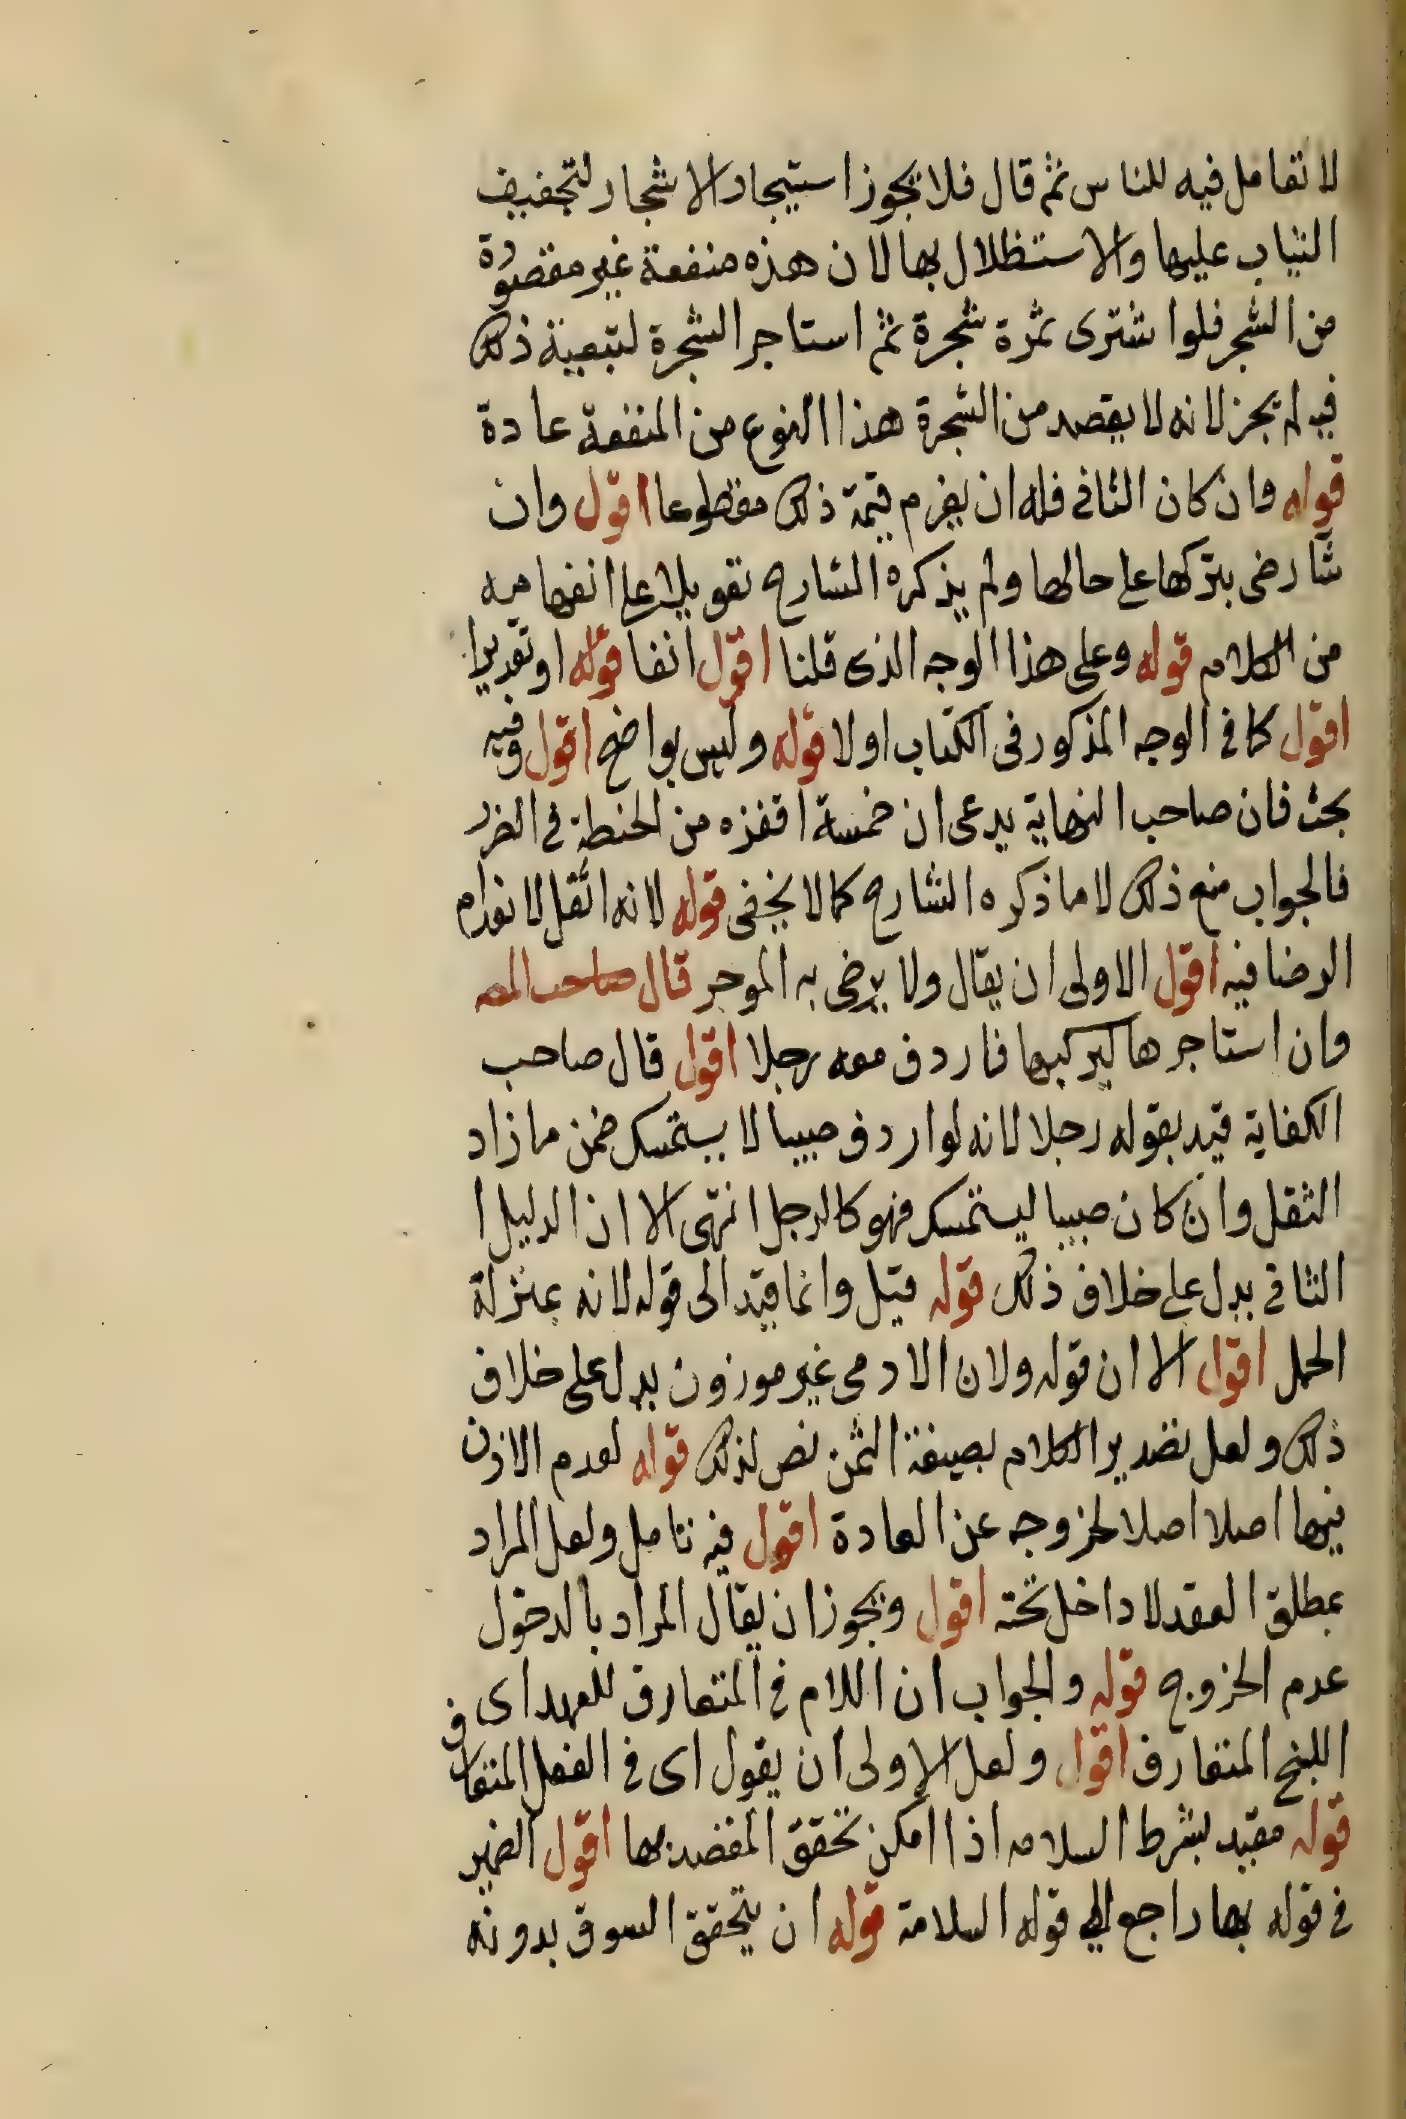 لا تعامل فيه للناس ثم قال فلا يجوز استيجار الاشجار لتجفيف
الثياب عليها والاستظلال بها لان هذه منفعة غير مقصودة
من الشجر فلو اشترى ثمرة شجرة ثم استاجر الشجرة لتبقية ذلك
فيه لم يجز لانه لا يقصد من الشجرة هذا النوع من المنفعة عادة
قوله وان كان الثانى فله ان يغرم قيمة ذلك مقطوعا اقول وان
شا رضى بتركها على حالها ولم يذكره الشارح تعويلا على انفهامه
من الكلام قوله وعلى هذا الوجه الذى قلنا اقول انفا قوله او تقديرا
اقول كما فى الوجه المذكور فى الكتاب اولا قوله وليس بواضح اقول وفيه
بحث فان صاحب النهاية يدعى ان خمسة اقفزه من الحنطة فى الضرر
فالجواب منع ذلك لا ما ذكره الشارح كما لا يخفى قوله لانه اثقل لانعدام
الرضا فيه اقول الاولى ان يقال ولا يرضى به الموجر قال صاحب المص
وان استاجرها ليركبها فاردف معه رجلا اقول قال صاحب
الكفاية قيد بقوله رجلا لانه لو اردف صبيا لا يستمسك ضمن ما زاد
الثقل وان كان صبيا يستمسك فهو كالرجل انتهى الا ان الدليل ا
الثانى يدل على خلاف ذلك قوله قيل وانما قيد الى قوله لانه بمنزلة
الحمل اقول الا ان قوله ولان الادمى غير موزون يدل على خلاف
ذلك ولعل تصدير الكلام بصيغة الثمن نص لذلك قوله لعدم الاذن
فيها اصلا اصلا لخروجه عن العادة اقول فيه تامل ولعل المراد
بمطلق العقد لا داخل تحته اقول ويجوز ان يقال المراد بالدخول
عدم الخروج قوله والجواب ان اللام فى المتعارف للعهد اى فى
اللبنج المتعارف اقول ولعل الاولى ان يقول اى فى الفعل المتعارف
قوله مقيد بشرط السلامه اذا امكن تحقق المقصد بها اقول الضمير
فى قوله بها راجع الى قوله السلامة قوله ان يتحقق السوق بدونه